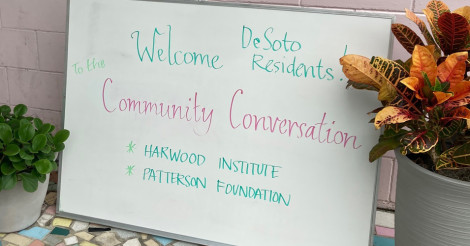 Welcome DeSoto Residents!
To the
Community Conversation
* HARWOOD INSTITUTE
* PATTERSON FOUNDATION